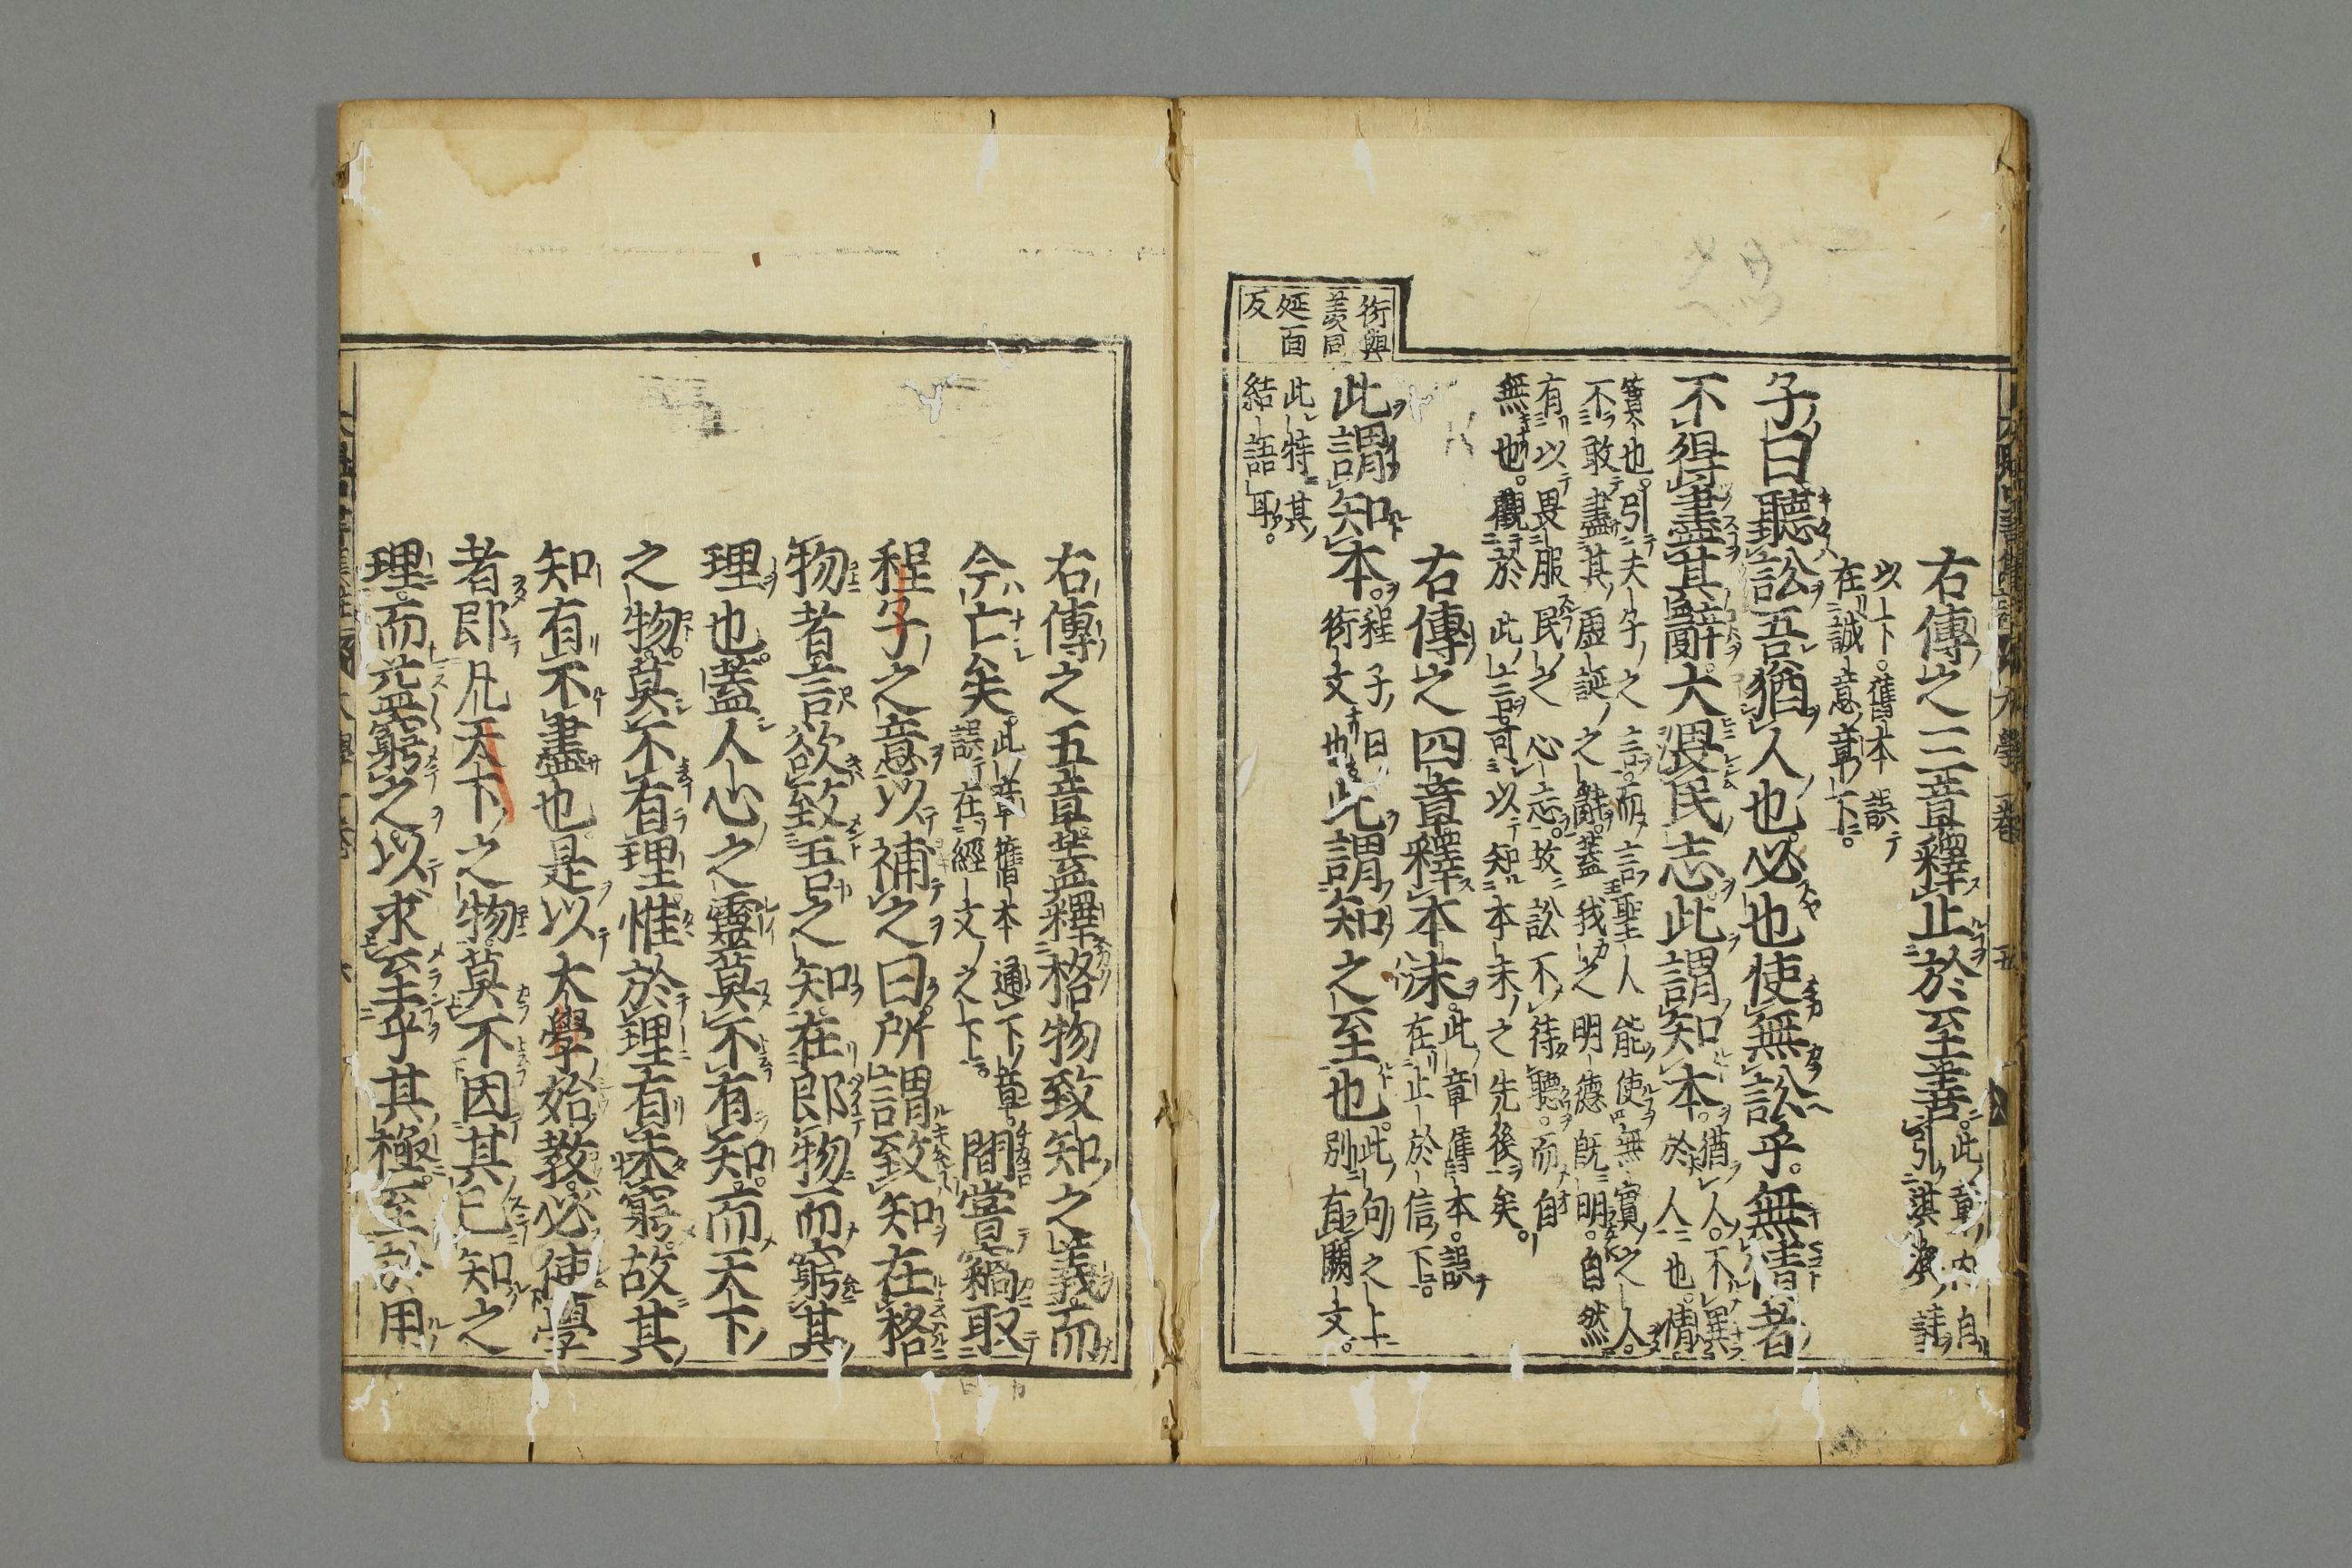 右傳之三章釋止於至善。此章内自引淇澳詩
以下。舊本誤在誠意章下。
子曰聽訟吾猶人也必也使無訟乎。無情者
不得盡其辭。大畏民志。此謂知本。猶人。不異於人也。情
實也。引夫子之言。而言聖人能使無實之人。
不敢盡其虛誕之辭。蓋我之明德既明。自然
有以畏服民之心志。故訟不待聽。而自
無也。觀於此言可以知本末之先後矣。
右傳之四章釋本末。此章舊本。誤在止於信下。
此謂知本。程子曰衍文也此謂知之至也。此句之上別有闕文。
此特其
結語耳。
衍與
羨同
延面
反
右傳之五章蓋釋格物致知之義而
今亡矣。此章舊本通下章。誤在經文之下。間嘗竊取
程子之意以補之曰。所謂致知在格
物者言欲致吾之知。在即物而窮其
理也。蓋人心之靈莫不有知。而天下
之物。莫不有理。惟於理有未窮。故其
知有不盡也是以大學始教。必使學
者即凡天下之物。莫不因其已知之
理。而益窮之。以求至乎其極。至於用